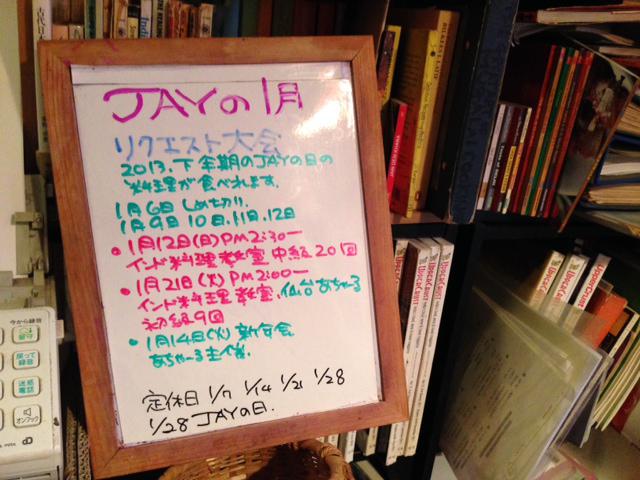 JAYの1月
リクエスト大会
2013.下半期のJAYの日の
料理が食べれます.
1月6日 しめ切り!.
1月9日 10日.11日.12日
•1月12日(日)PM2:30ー
インド料理教室 中級20回
•1月21日(火)PM2:00ー
インド料理教室.仙台あちゃーる
初級9回
•1月14日(火)新年会
あちゃーる主催.
定休日 1/7 1/14 1/21 1/28
1/28 JAYの日.
今から録音
留守
戻って
録音
迷惑
電話
オンフック